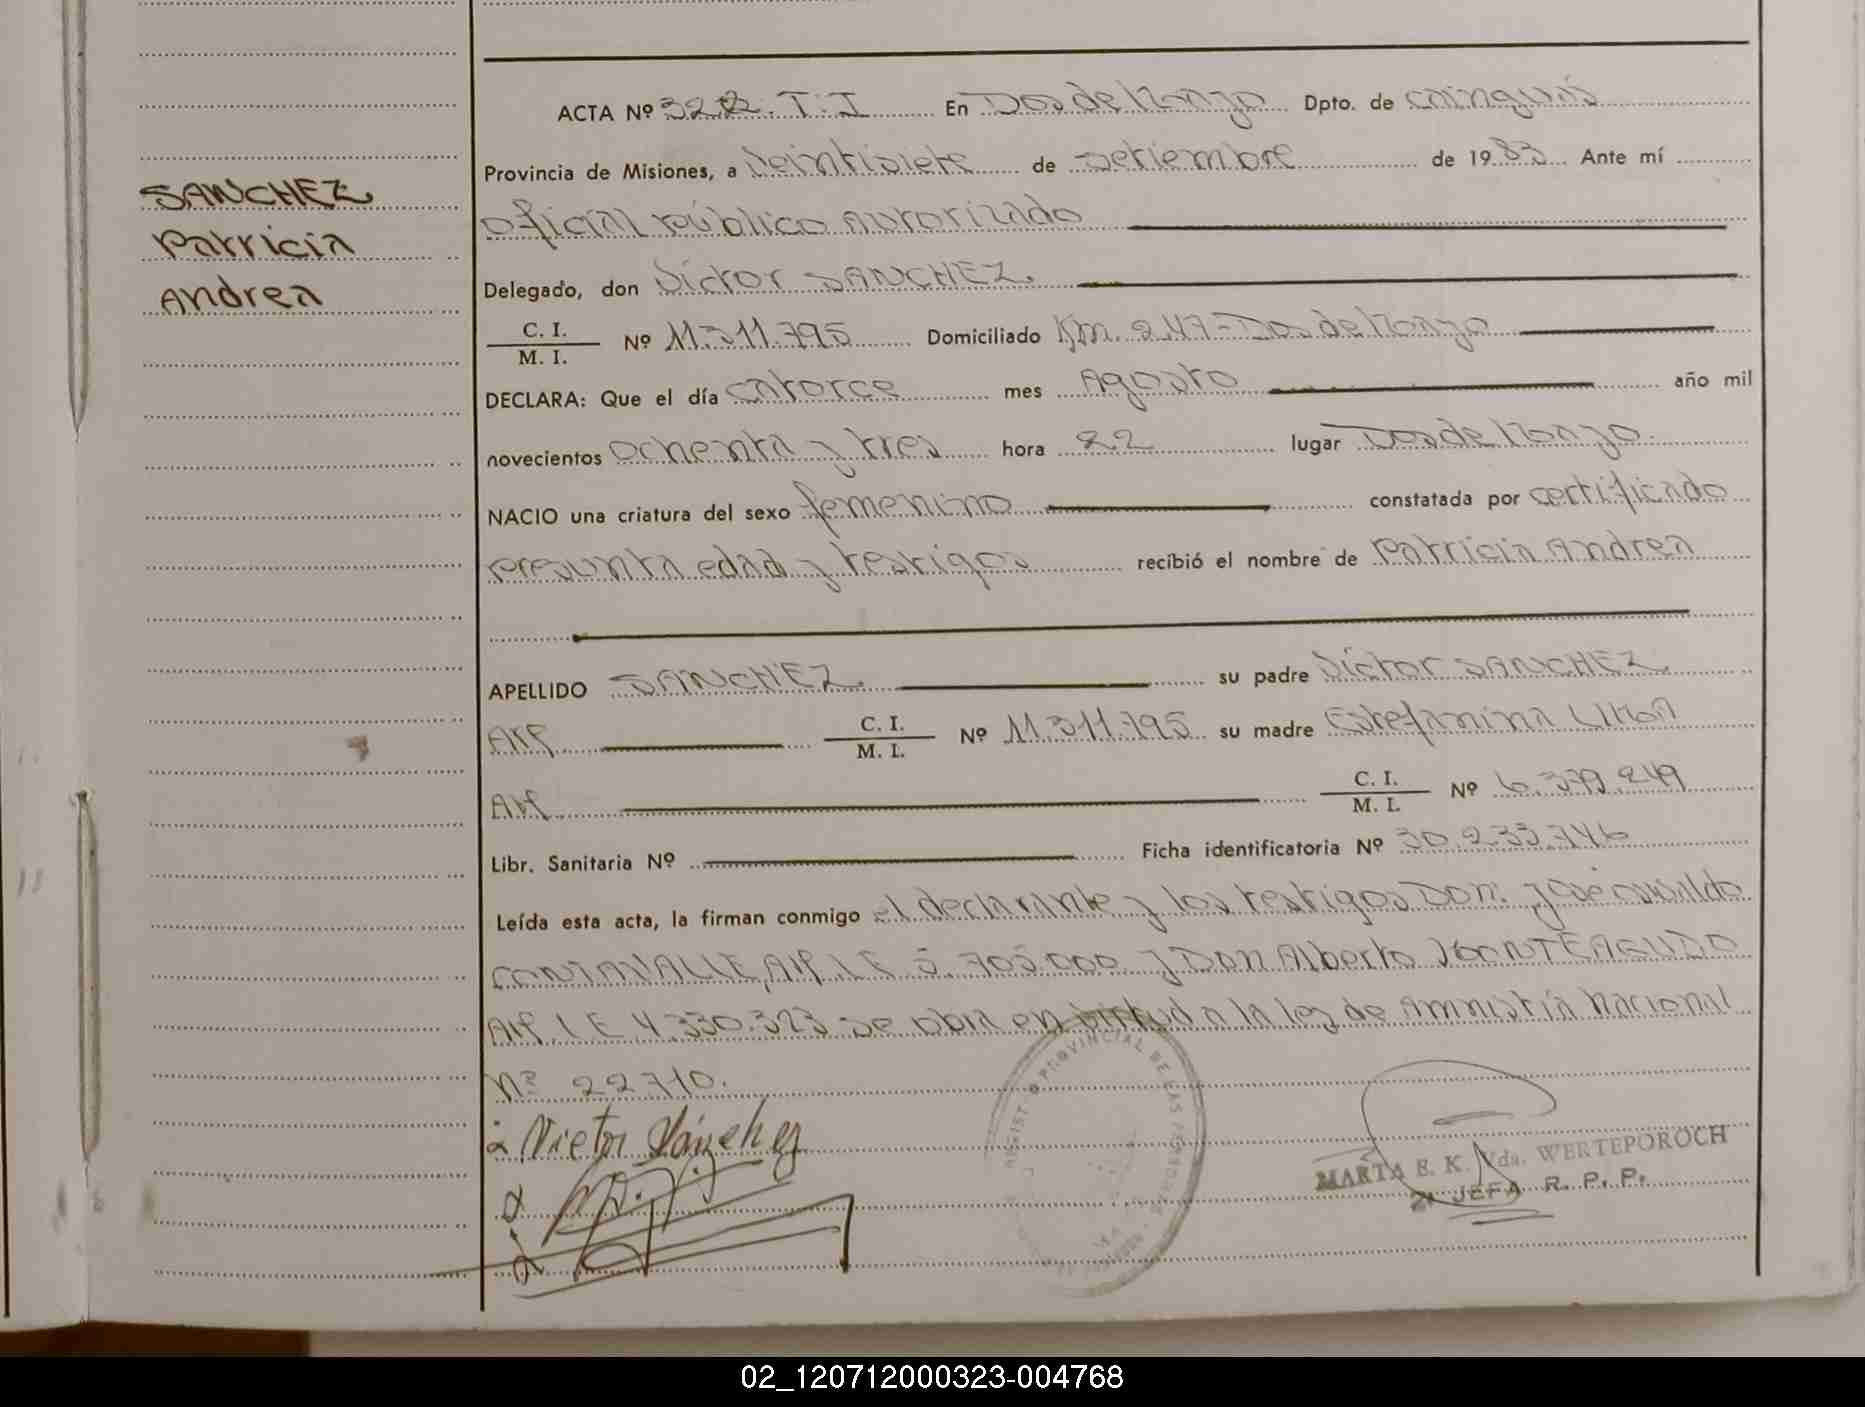 SANCHEZ
Patricia
Andrea
ACTA Nº 322. T: I En Dos de Mayo Dpto. de Cainguás
Provincia de Misiones, a Veintisiete de Setiembre de 1983 Ante mí
oficial público Autorizado
Delegado, don Víctor SANCHEZ.
C. I. / M. I. Nº 11.311.795 Domiciliado Km. 247-Dos de Mayo
DECLARA: Que el día catorce mes Agosto año mil
novecientos ochenta y tres hora 22 lugar Dos de Mayo.
NACIO una criatura del sexo femenino constatada por certificado
presunta edad y testigos recibió el nombre de Patricia Andrea
APELLIDO SANCHEZ. su padre Víctor SANCHEZ.
Arg. C. I. / M. I. Nº 11.311.795 su madre Estefanina
Arg. C. I. / M. I. Nº 6.379.249
Libr. Sanitaria Nº Ficha identificatoria Nº 30.233.746
Leída esta acta, la firman conmigo el declarante y los testigos Don: José Osvaldo
CONTAVALLE, Arg. L E 5.705.000 y Don Alberto MONTEAGUDO
Arg. L E 4.330.323 se obra en birtud a la ley de Amnistía Nacional
Nº 22710.
Victor Sánchez
PROVINCIAL DE LAS PERSONAS
MARTA E. K. Vda. WERTEPOROCH
JEFA R. P. P.
02_120712000323-004768